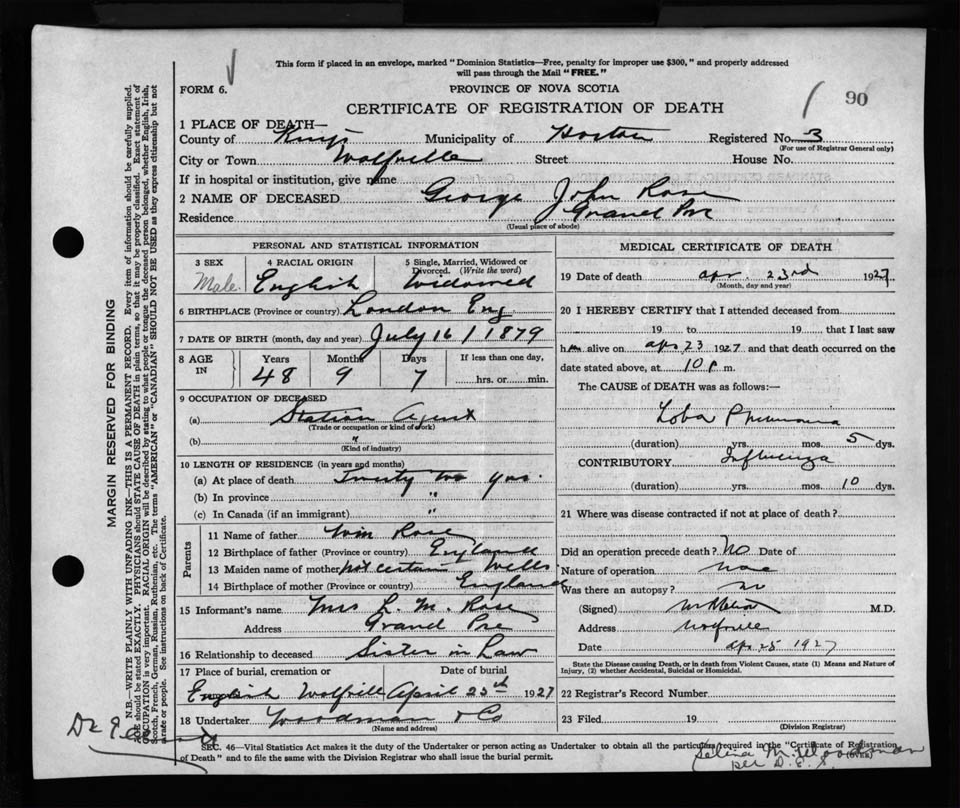 This form if placed in an envelope, marked "Dominion Statistics—Free, penalty for improper use $300," and properly addressed
will pass through the Mail "FREE."
FORM 6.
PROVINCE OF NOVA SCOTIA
CERTIFICATE OF REGISTRATION OF DEATH
90
1 PLACE OF DEATH—
County of Kings Municipality of Horton Registered No. 3
(For use of Registrar General only)
City or Town Wolfville Street House No.
If in hospital or institution, give name
2 NAME OF DECEASED George John Rose
Residence Grand Pre
(Usual place of abode)
PERSONAL AND STATISTICAL INFORMATION
3 SEX 4 RACIAL ORIGIN 5 Single, Married, Widowed or
Divorced. (Write the word)
Male English Widowed
6 BIRTHPLACE (Province or country) London Eng
7 DATE OF BIRTH (month, day and year) July 16 / 1879
8 AGE IN Years Months Days If less than one day,
48 9 7 hrs. or min.
9 OCCUPATION OF DECEASED
(a) Station Agent
(Trade or occupation or kind of work)
(b) "
(Kind of industry)
10 LENGTH OF RESIDENCE (in years and months)
(a) At place of death Twenty two yrs.
(b) In province "
(c) In Canada (if an immigrant) "
Parents
11 Name of father Wm Rose
12 Birthplace of father (Province or country) England
13 Maiden name of mother Not certain Wells
14 Birthplace of mother (Province or country) England
15 Informant's name Mrs L. M. Rose
Address Grand Pre
16 Relationship to deceased Sister in Law
17 Place of burial, cremation or Date of burial
English Wolfville April 25th 1927
18 Undertaker Woodman & Co
(Name and address)
MEDICAL CERTIFICATE OF DEATH
19 Date of death apr 23rd 1927
(Month, day and year)
20 I HEREBY CERTIFY that I attended deceased from
19 to 19 that I last saw
him alive on apr 23 1927 and that death occurred on the
date stated above, at 10 p m.
The CAUSE of DEATH was as follows:—
Loba Pneumonia
(duration) yrs. mos. 5 dys.
CONTRIBUTORY Influenza
(duration) yrs. mos. 10 dys.
21 Where was disease contracted if not at place of death?
Did an operation precede death? No Date of
Nature of operation None
Was there an autopsy? No
(Signed) M.D.
Address Wolfville
Date apr 25 1927
State the Disease causing Death, or in death from Violent Causes, state (1) Means and Nature of
Injury, (2) whether Accidental, Suicidal or Homicidal.
22 Registrar's Record Number
23 Filed 19
(Division Registrar)
SEC. 46—Vital Statistics Act makes it the duty of the Undertaker or person acting as Undertaker to obtain all the particulars required in the "Certificate of Registration
of Death" and to file the same with the Division Registrar who shall issue the burial permit.
(OVER)
Selina M. Woodman
per D. E. S.
MARGIN RESERVED FOR BINDING
N.B.—WRITE PLAINLY WITH UNFADING INK—THIS IS A PERMANENT RECORD. Every item of information should be carefully supplied.
AGE should be stated EXACTLY. PHYSICIANS should STATE CAUSE OF DEATH in plain terms, so that it may be properly classified. Exact statement of
OCCUPATION is very important. RACIAL ORIGIN will be described by stating to what people or tongue the deceased person belonged, whether English, Irish,
Scotch, French, German, Russian, Ruthenian, etc. The terms "AMERICAN" or "CANADIAN" SHOULD NOT BE USED as they express citizenship but not
a race or people. See instructions on back of Certificate.